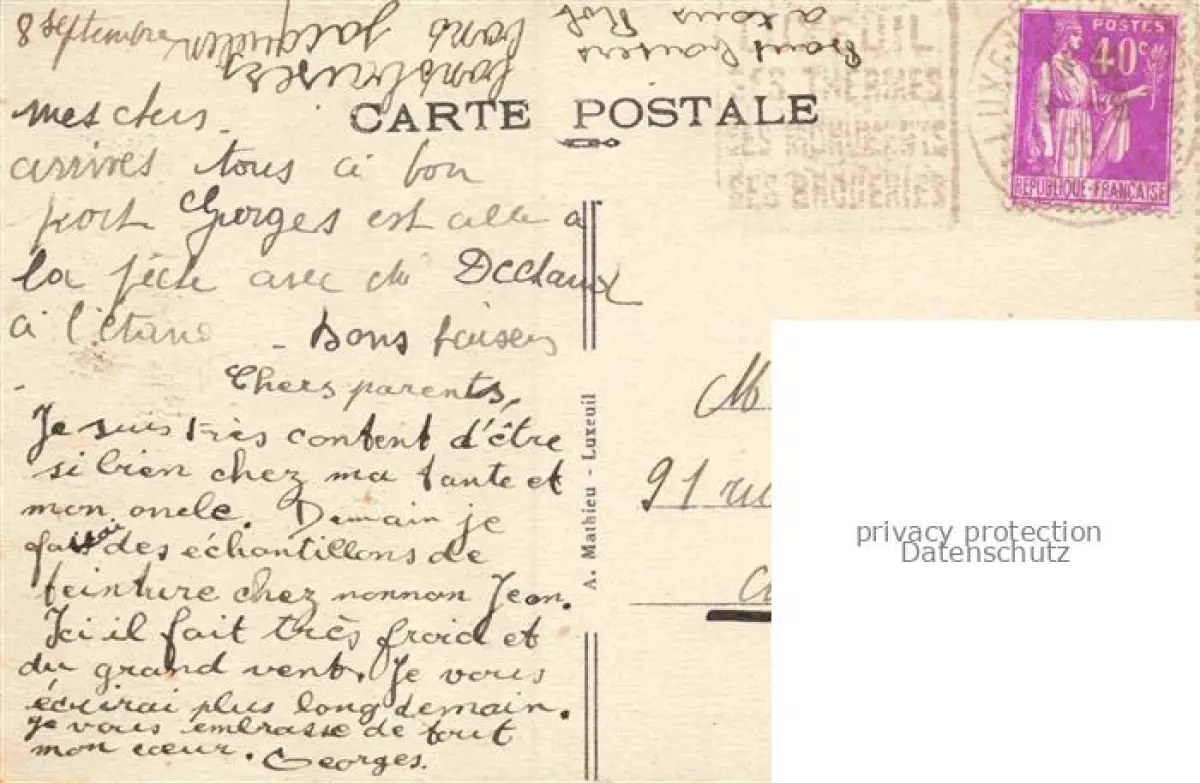 8 septembre
bons baisers
bons Jacqueline
bons baisers
a tous
CARTE POSTALE
mes chers -
arrives tous a bon
port Georges est allé a
la pêche avec
à l'étang - Bons baisers
Chers parents,
Je suis très content d'être
si bien chez ma tante et
mon oncle. Demain je
ferai des échantillons de
teinture chez nonnon Jean.
Ici il fait très froid et
du grand vent. Je vous
écrirai plus long demain.
Je vous embrasse de tout
mon cœur. Georges.
A. Mathieu - Luxeuil
LUXEUIL
SES THERMES
SES MONUMENTS
SES BRODERIES
POSTES
40c
REPUBLIQUE-FRANÇAISE
M
91 ru
privacy protection
Datenschutz